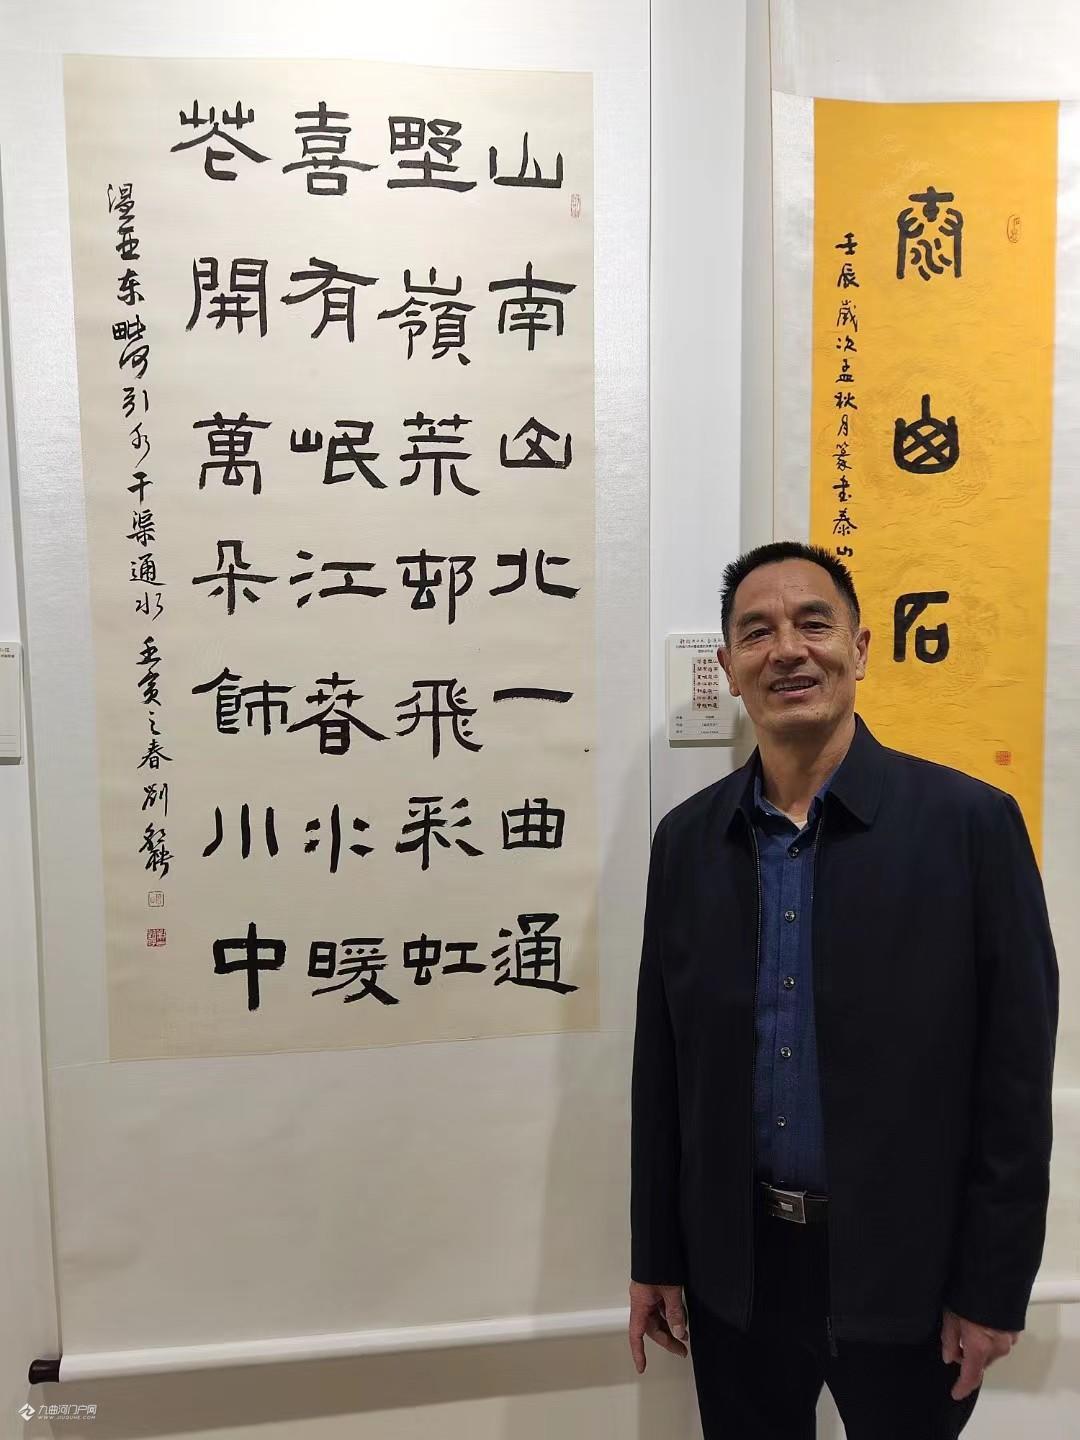 山南山北一曲通
野嶺荒邨飛彩虹
喜有岷江春水暖
花開萬朵飾川中
温亚东毗河引水千渠通水 壬寅之春劉
壬辰歲次孟秋月篆書泰山
石
九曲河门户网
WWW.JIUQUHE.COM